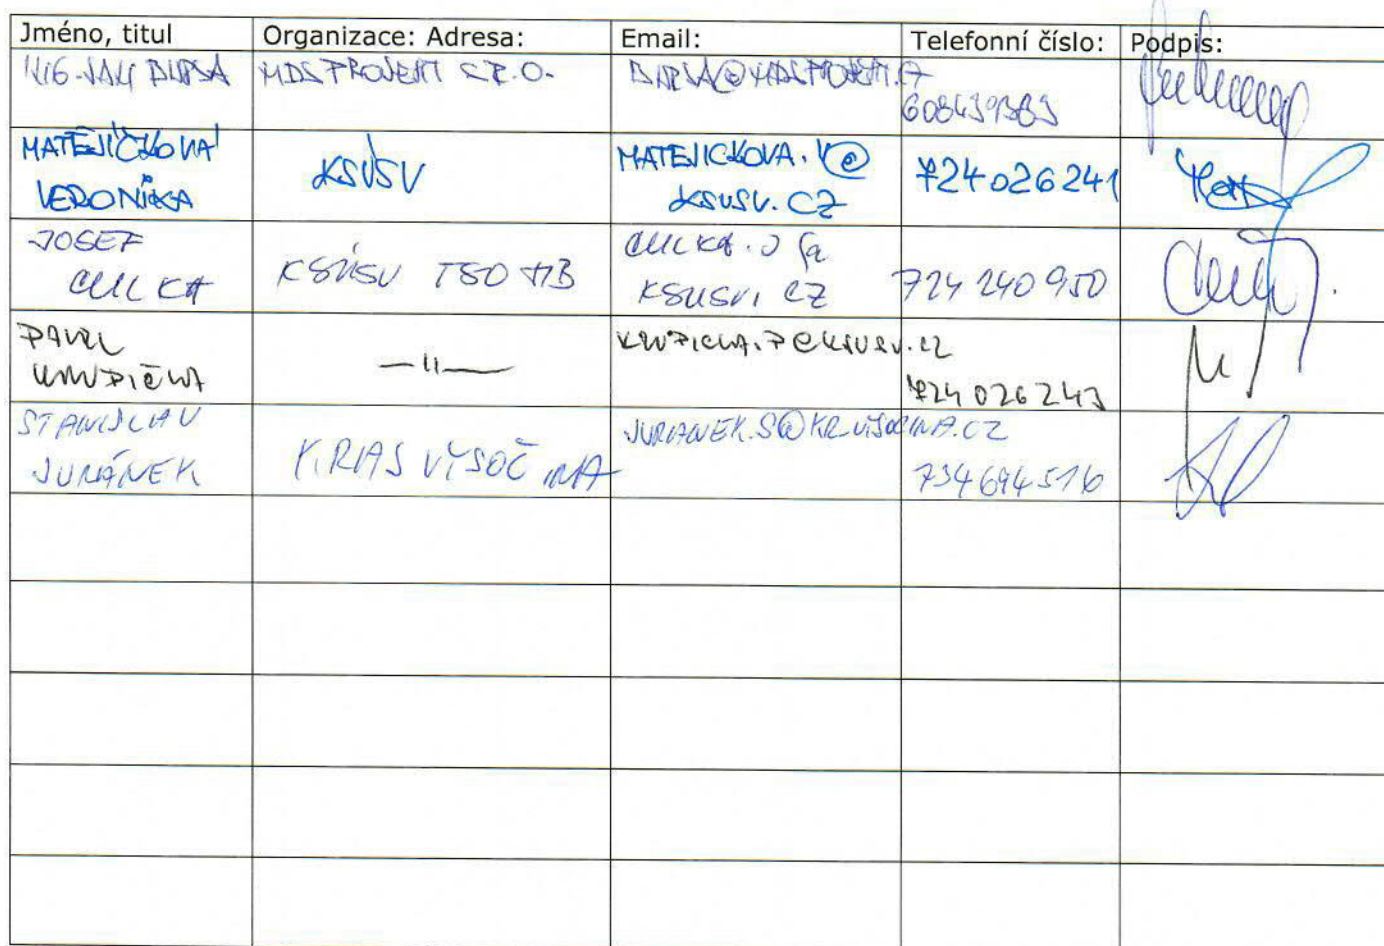 Jméno, titul Organizace: Adresa: Email: Telefonní číslo: Podpis:
ING. JAN BURSA MDS PROJEKT S.R.O. BURSA@MDSPROJEKT.CZ
MATEJÍČKOVÁ
VERONIKA KSÚSV MATEJICKOVA.V@
KSUSV.CZ 724 026 241
JOSEF
CULKA KSÚSV TSO HB CULKA.J@
KSUSV.CZ 724 240 950
PAVEL
KRUPIČKA —11— KRUPICKA.P@KSUSV.CZ
724 026 243
STANISLAV
JURÁNEK KRAJ VYSOČINA JURANEK.S@KR-VYSOCINA.CZ
734694516